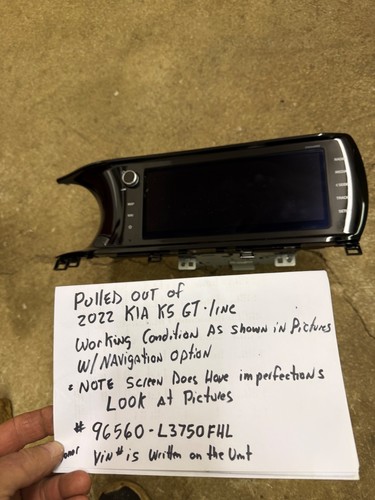 PULLED OUT of
2022 KIA K5 GT-line
Working Condition As shown in Pictures
W/ NAVigation OPtion
* NOTE Screen Does Have imperfections
LOOK At Pictures
# 96560-L3750FHL
Donor Vin# is Written on the Unit